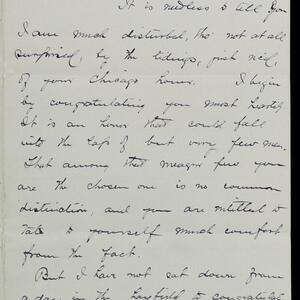 It is needless to tell you
I am much disturbed, tho' not at all
surprised, by the tidings, just rec'd,
of your Chicago honor. I begin
by congratulating you most heartily.
It is an honor that could fall
into the laps of but very few men.
That among that meagre few you
are the chosen one is no common
distinction, and you are entitled to
take to yourself much comfort
from the fact.
But I have not sat down from
a day in the hayfield to congratulate